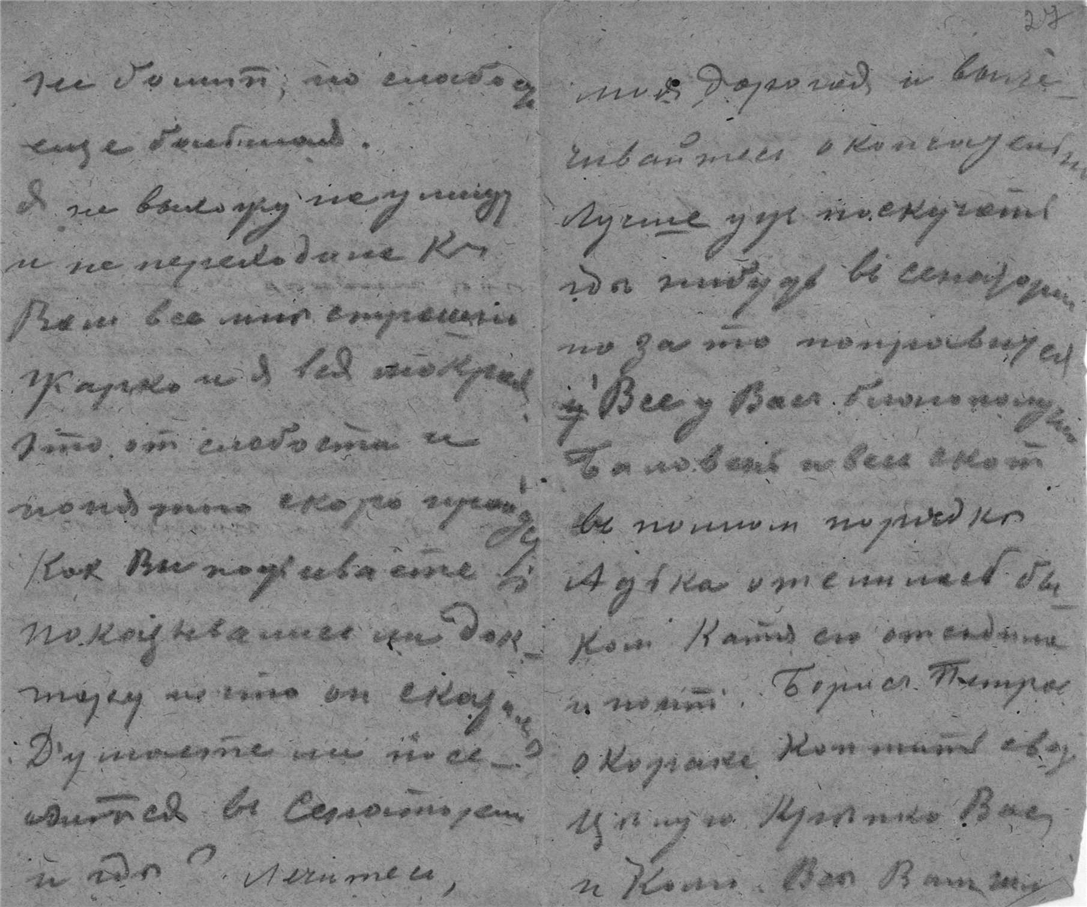 не болит, но слабость
еще большая.
Я не выхожу на улицу
и не перехода не к
Вам все мне страшно
Жарко и я вся мокрая
это от слабости и
понятно скоро пройдет
Как Вы поживаете
показывались ли док-
тору и что он сказал?
Думаете ли посе-
литься въ Санаторий
и где? Лечитесь,
27
моя дорогая и выле-
чивайтесь окончательно
Лучше уж поскучать
где нибудь въ санатории
но за то поправиться
Все у Васъ благополучно
Баловень и весь скот
въ полном порядке
Адька отелилась бы-
ком Катя ею отходила
и поит. Борисъ Петро
о Коптить
Целую Крепко Вас
и Колю. Вся Ваша